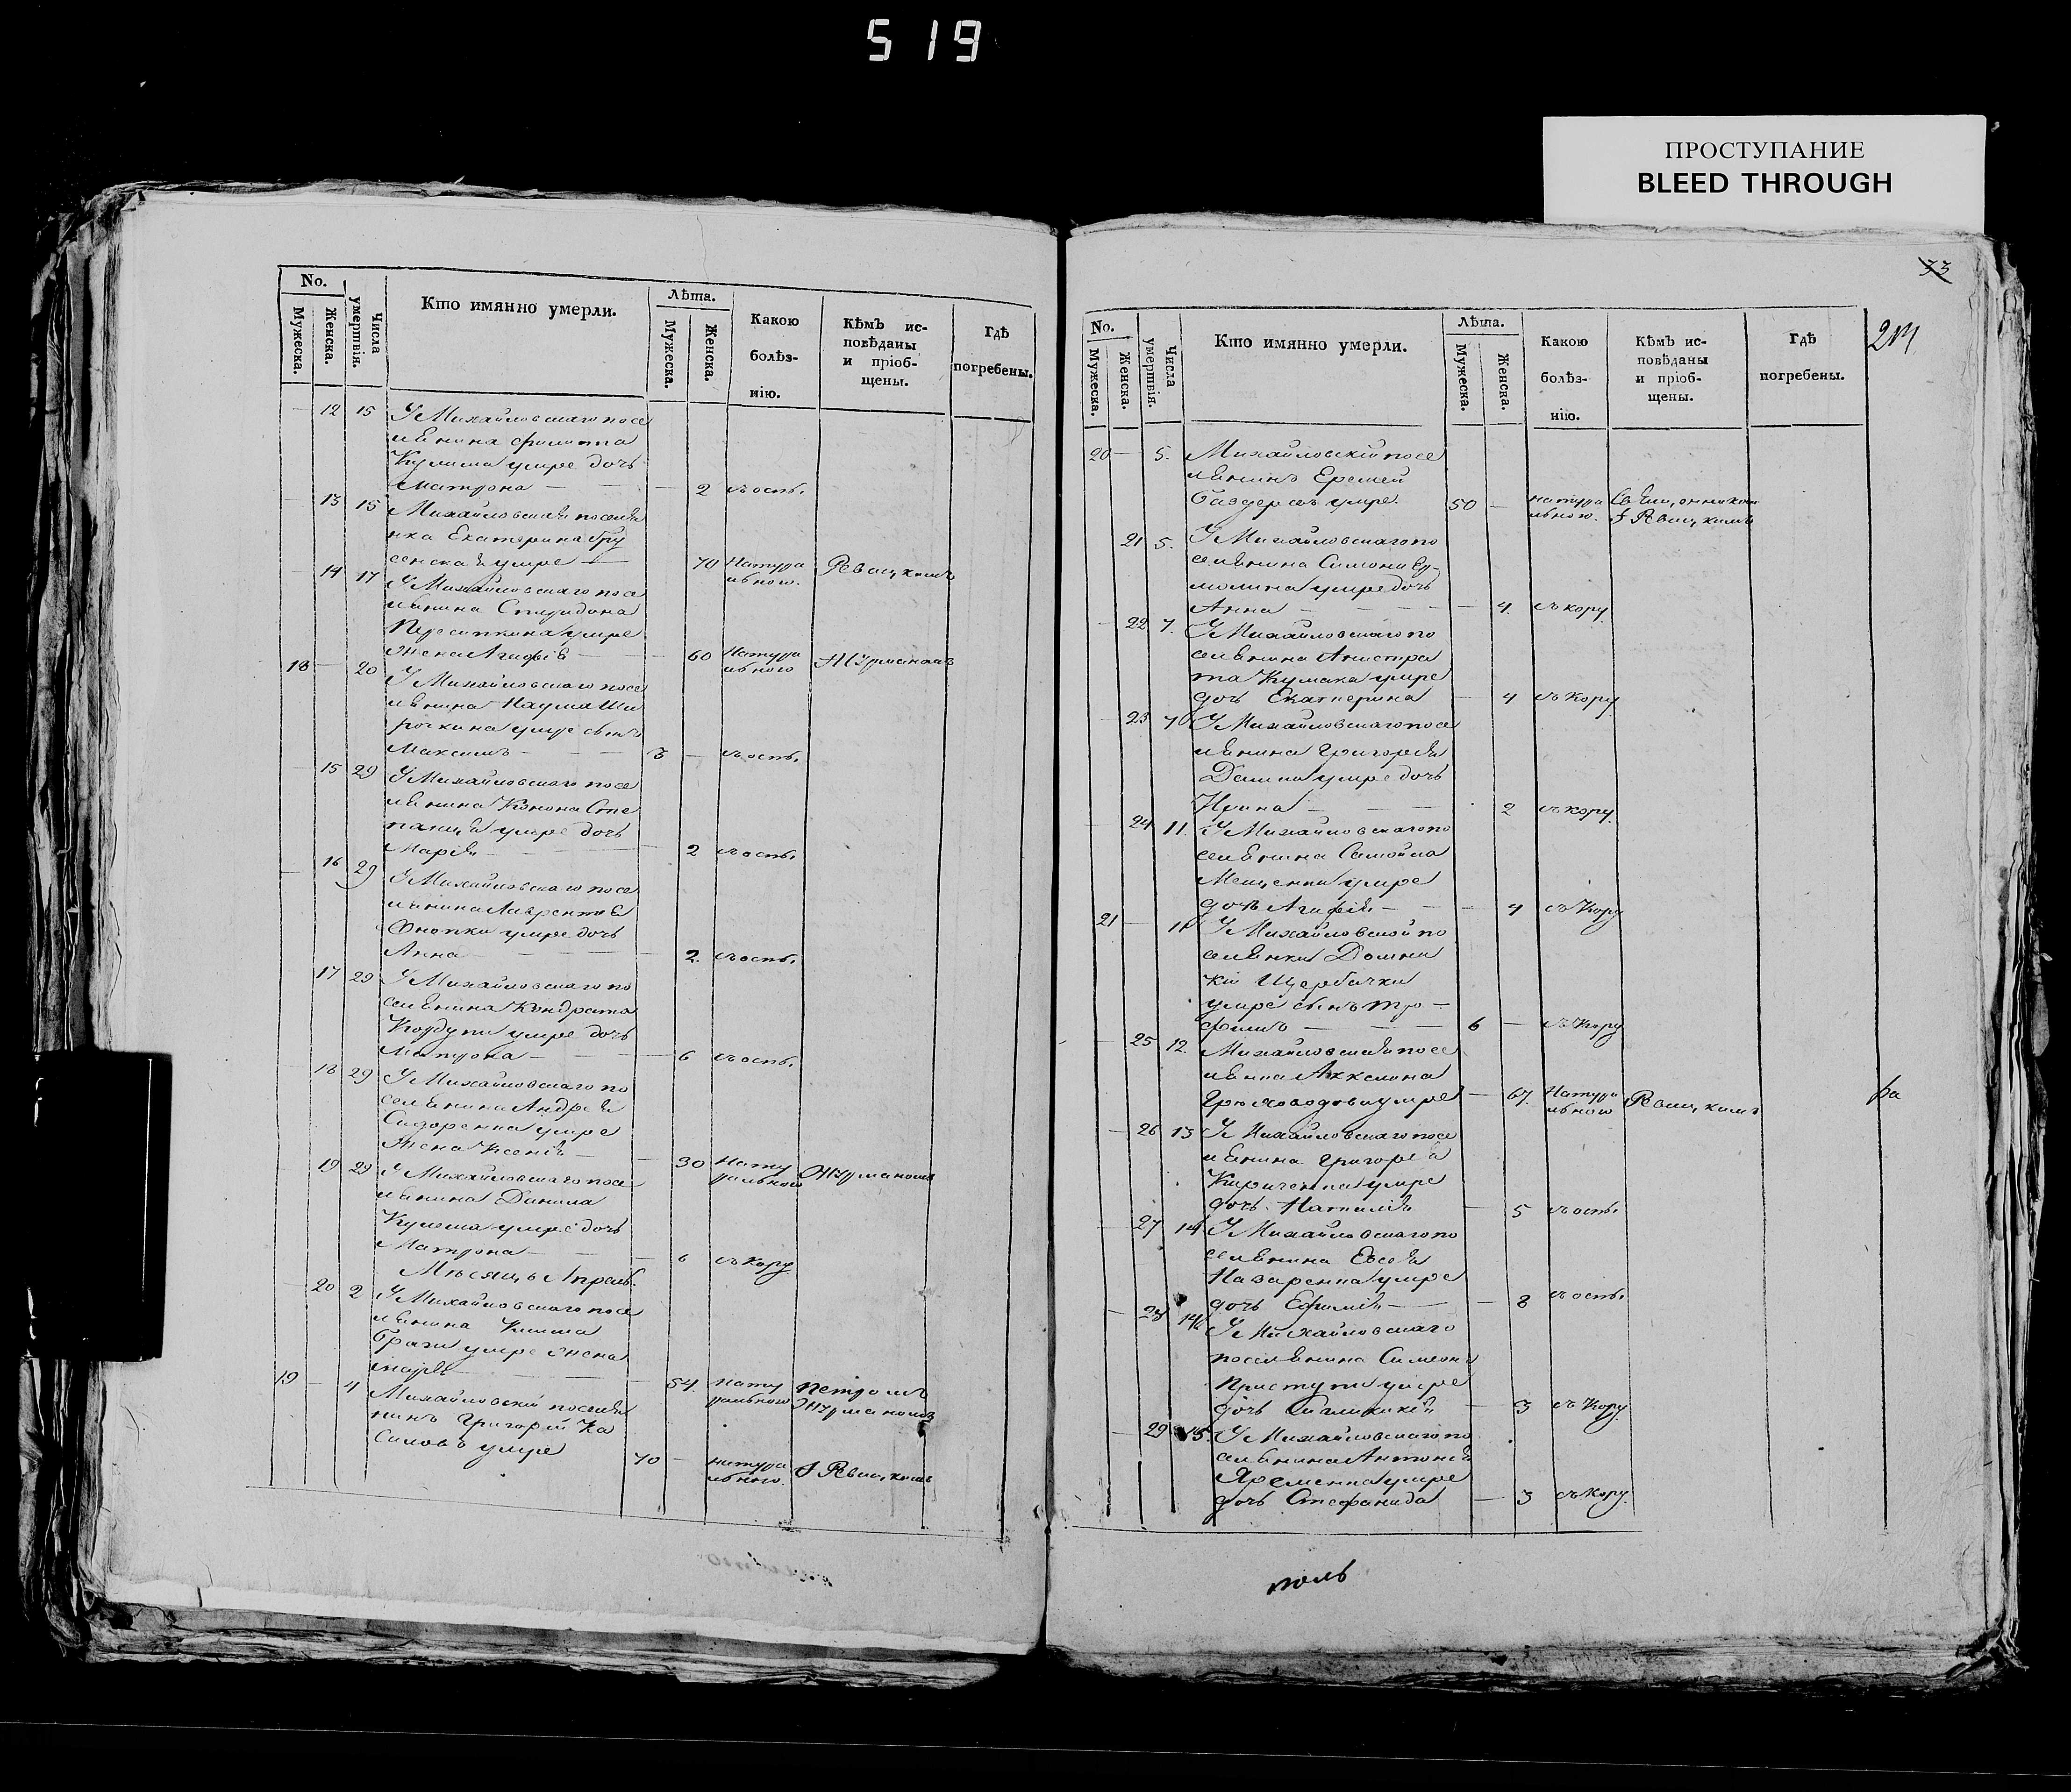 519
ПРОСТУПАНИЕ
BLEED THROUGH
No.
Мужеска.
Женска.
Числа умертвія.
Кто имянно умерли.
Лѣта.
Мужеска.
Женска.
Какою болѣз-нію.
Кѣмъ ис-повѣданы и пріоб-щены.
Гдѣ погребены.
— 12 15 У Михайловскаго посе
лянина Филиппа
умре дочь
Матрона — — — 2 съ оспы.
— 13 15 Михайловская поселян
нка Екатерина Гру
сенская умре — 70 Натура Рѣвицкимъ
льною.
— 14 17 У Михайловскаго посе
лянина Спиридона
Пересипкина умре
жена Агафія — — 60 Натура Журманомъ
льною
18 — 20 У Михайловскаго посе
лянина Наума Ши
рочкина умре сынъ
Максимъ — — 3 — съ оспы.
— 15 29 У Михайловскаго посе
лянина Конона Сте
панца умре дочь
Марія — — — 2 съ оспы.
— 16 29 У Михайловскаго посе
лянина Лаврентія
умре дочь
Анна — — — 2. съ оспы.
17 29 У Михайловскаго по
селянина Кондрата
умре дочь
Матрона — — — 6 съ оспы.
— 18 29 У Михайловскаго по
селянина Андрея
Сидоренка умре
жена Ксенія — — 30 Нату Журманомъ
ральною
— 19 29 У Михайловскаго посе
лянина Данила
Кулеша умре дочь
Матрона — — — 6 съ кору
Мѣсяцъ Апрель.
— 20 2 У Михайловскаго посе
лянина Клима
Браги умре жена
Марія — — — 54. Нату Петромъ
ральною Журманомъ
19 — 4 Михайловскій поселя
нинъ Григорій Ка
силовъ умре 70 — натура Рѣвицкимъ
льною.
73
No.
Мужеска.
Женска.
Числа умертвія.
Кто имянно умерли.
Лѣта.
Мужеска.
Женска.
Какою болѣз-нію.
Кѣмъ ис-повѣданы и пріоб-щены.
Гдѣ погребены.
20 — 5. Михайловскій посе
лянинъ Еремей
умре. 50 — натура
льною. Рѣвицкимъ
21 5. У Михайловскаго по
селянина Симона Ер-
молина умре дочь
Анна — — — — 4. съ кору.
— 22 7. У Михайловскаго по
селянина
та Кулика умре
дочь Екатерина — 4 съ кору
— 23 10 У Михайловскаго посе
лянина Григорія
умре дочь
Ирина — — — 2 съ кору.
— 24 11. У Михайловскаго по
селянина Самойла
Мещенка умре
дочь Агафія — — — 4 съ кору
21 — 11 У Михайловской по
селянки Домни
кіи Щербачки
умре сынъ Тро-
фимъ — — — 6 — съ кору
— 25 12. Михайловская посе
лянка
умре — 67. Натура Рѣвицкимъ
льною
— 26 13 У Михайловскаго посе
лянина Григорія
Кириченка умре
дочь Наталія — 5 съ оспы.
— 27 14 У Михайловскаго по
селянина Евсея
Назаренка умре
дочь Ефимія — — — 8 съ оспы.
— 28 14 У Михайловскаго
поселянина Симеона
Приступи умре
дочь — 3 съ кору.
— 29 15. У Михайловскаго по
селянина Антонія
Яременка умре
дочь Стефанида — 3 съ кору.
поль